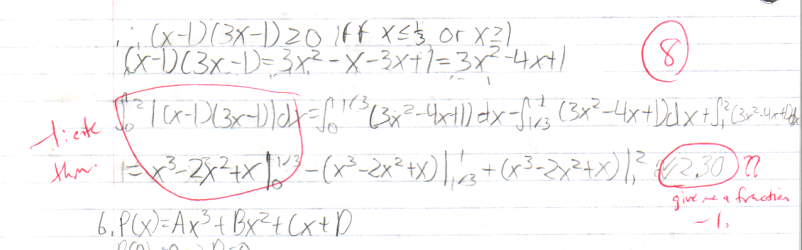 ∴ (x-1)(3x-1)≥0 iff x≤1/3 or x≥1
(x-1)(3x-1)=3x²-x-3x+1=3x²-4x+1
8
∫₀² |(x-1)(3x-1)|dx=∫₀^1/3 (3x²-4x+1) dx-∫_1/3^1 (3x²-4x+1)dx+∫₁² (3x²-4x+1)dx
thm.
= x³-2x²+x |₀^1/3 -(x³-2x²+x)|_1/3^1 +(x³-2x²+x)|₁² ≈2.30 ??
give me a fraction
-1.
6. P(x)=Ax³+Bx²+Cx+D